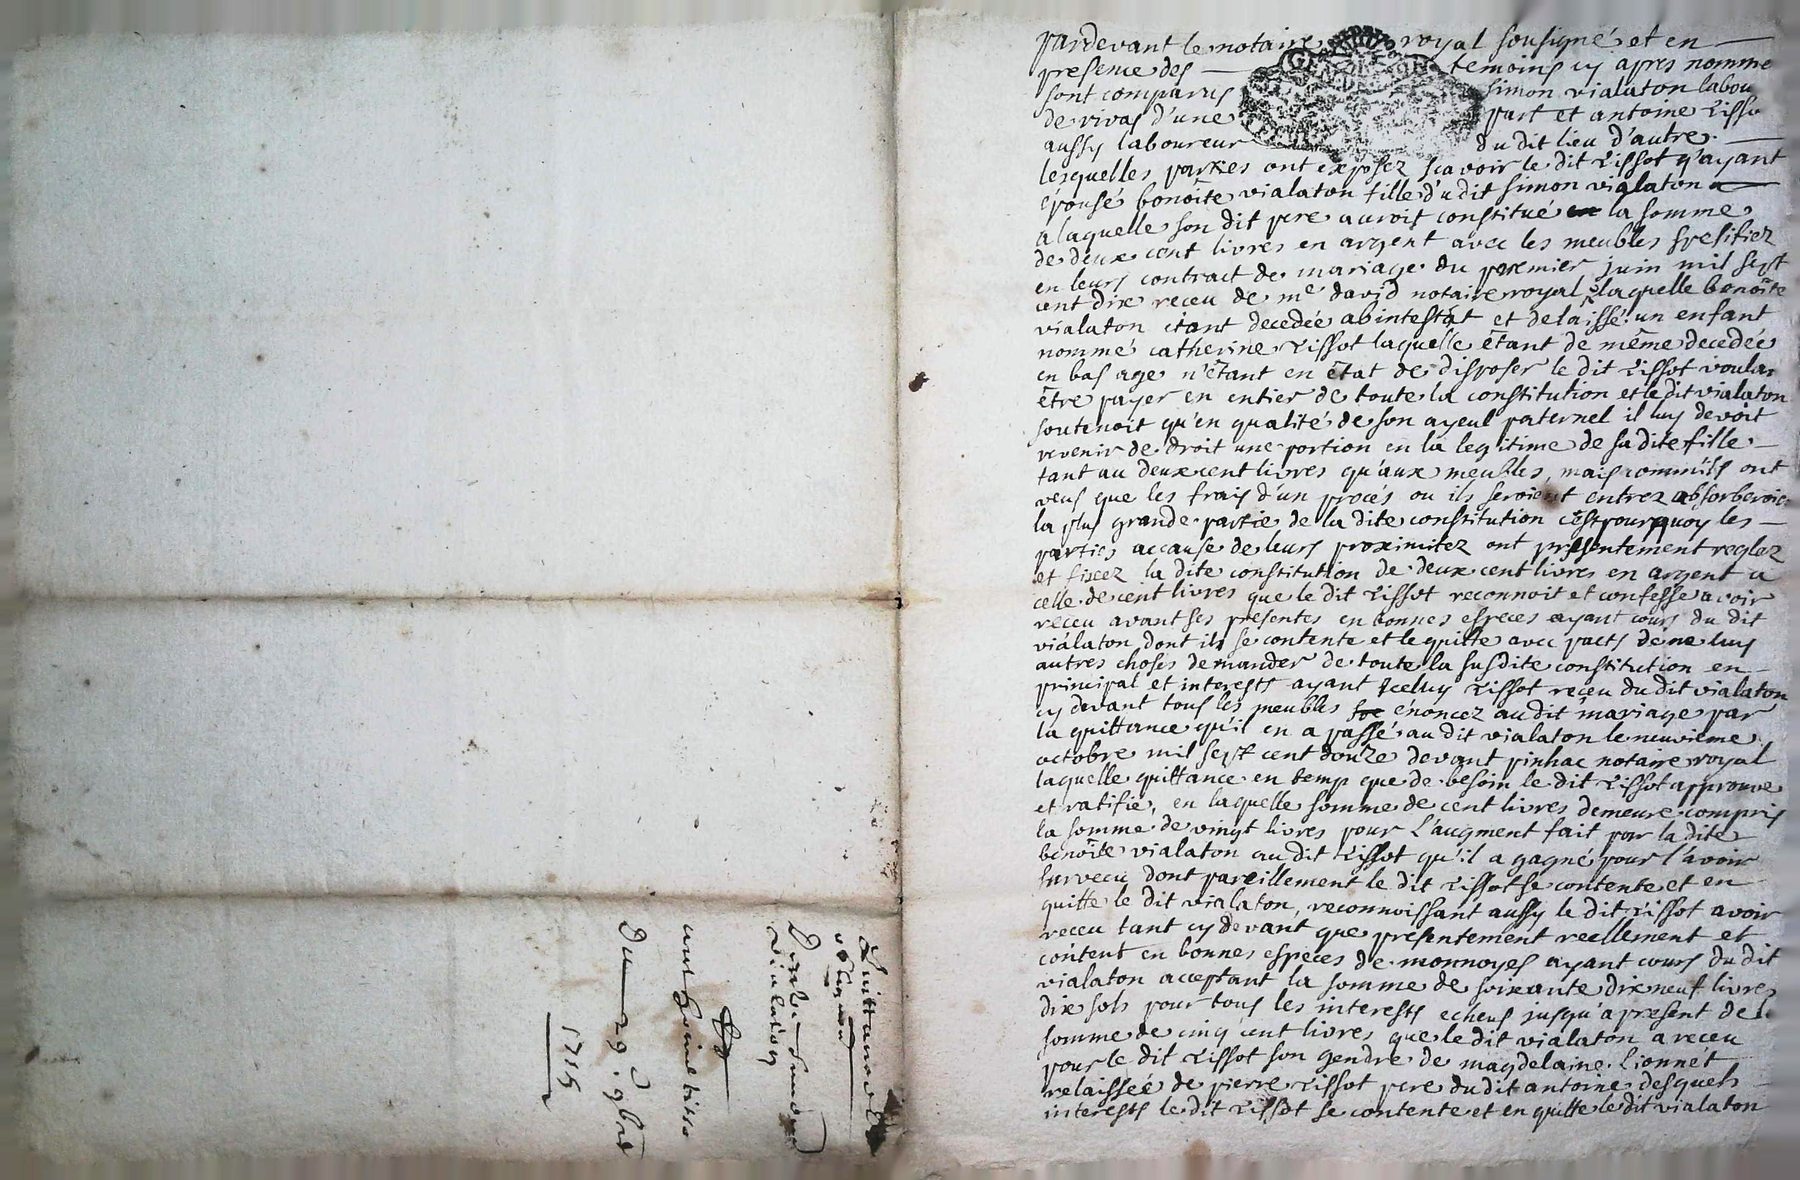 pardevant le notaire royal sousigné et en
presence des temoins cy apres nomme
sont comparus simon vialaton labou
de rivas d'une part et antoine tisso
aussy laboureur du dit lieu d'autre
lesquelles parties ont exposez sçavoir le dit tissot q'ayant
épousé benoite vialaton fille du dit simon vialaton
a laquelle son dit pere auroit constitué la somme
de deux cent livres en argent avec les meubles spesifiez
en leurs contract de mariage du premier juin mil sept
cent dix receu de me david notaire royal laquelle benoite
vialaton étant decedée abintestat et delaissé un enfant
nommé catherine tissot laquelle étant de même decedée
en bas age n'étant en état de disposer le dit tissot voulai
être payer en entier de toute la constitution et le dit vialaton
soutenoit qu'en qualité de son ayeul paternel il luy devoit
revenir de droit une portion en la legitime de sa dite fille
tant au deux cent livres qu'aux meubles, mais comm'ils ont
veus que les frais d'un procés ou ils seroient entrez absorberoie
la plus grande partie de la dite constitution c'est pourquoy les
parties accause de leurs proximitez ont presentement reglez
et fixez la dite constitution de deux cent livres en argent a
celle de cent livres que le dit tissot reconnoit et confesse avoir
receu avant ses presentes en bonnes especes ayant cours du dit
vialaton dont ils se contente et le quitte avec pacts de ne luy
autres choses demander de toute la susdite constitution en
principal et interests ayant iceluy tissot reçeu du dit vialaton
cy devant tous les meubles énoncez au dit mariage par
la quittance qu'il en a passé au dit vialaton le neuvieme
octobre mil sept cent douze devant pinhac notaire royal
laquelle quittance en temp que de besoin le dit tissot approuve
et ratifie, en laquelle somme de cent livres demeure compris
la somme de vingt livres pour l'augment fait par la dite
benoite vialaton au dit tissot qu'il a gagné pour l'avoir
survecu dont pareillement le dit tissot se contente et en
quitte le dit vialaton, reconnoissant aussy le dit tissot avoir
receu tant cy devant que presentement reellement et
content en bonnes espèces de monnoyes ayant cours du dit
vialaton acceptant la somme de soixante dix neuf livres
dix sols pour tous les interests echeus jusqu'a present de la
somme de cinq cent livres que le dit vialaton a receu
pour le dit tissot son gendre de magdelaine lionnét
relaissée de pierre tissot pere du dit antoine desquels
interests le dit tissot se contente et en quitte le dit vialaton
Quittance
Simon
vialaton
anthoine tisso
Du 29 9bre
1715